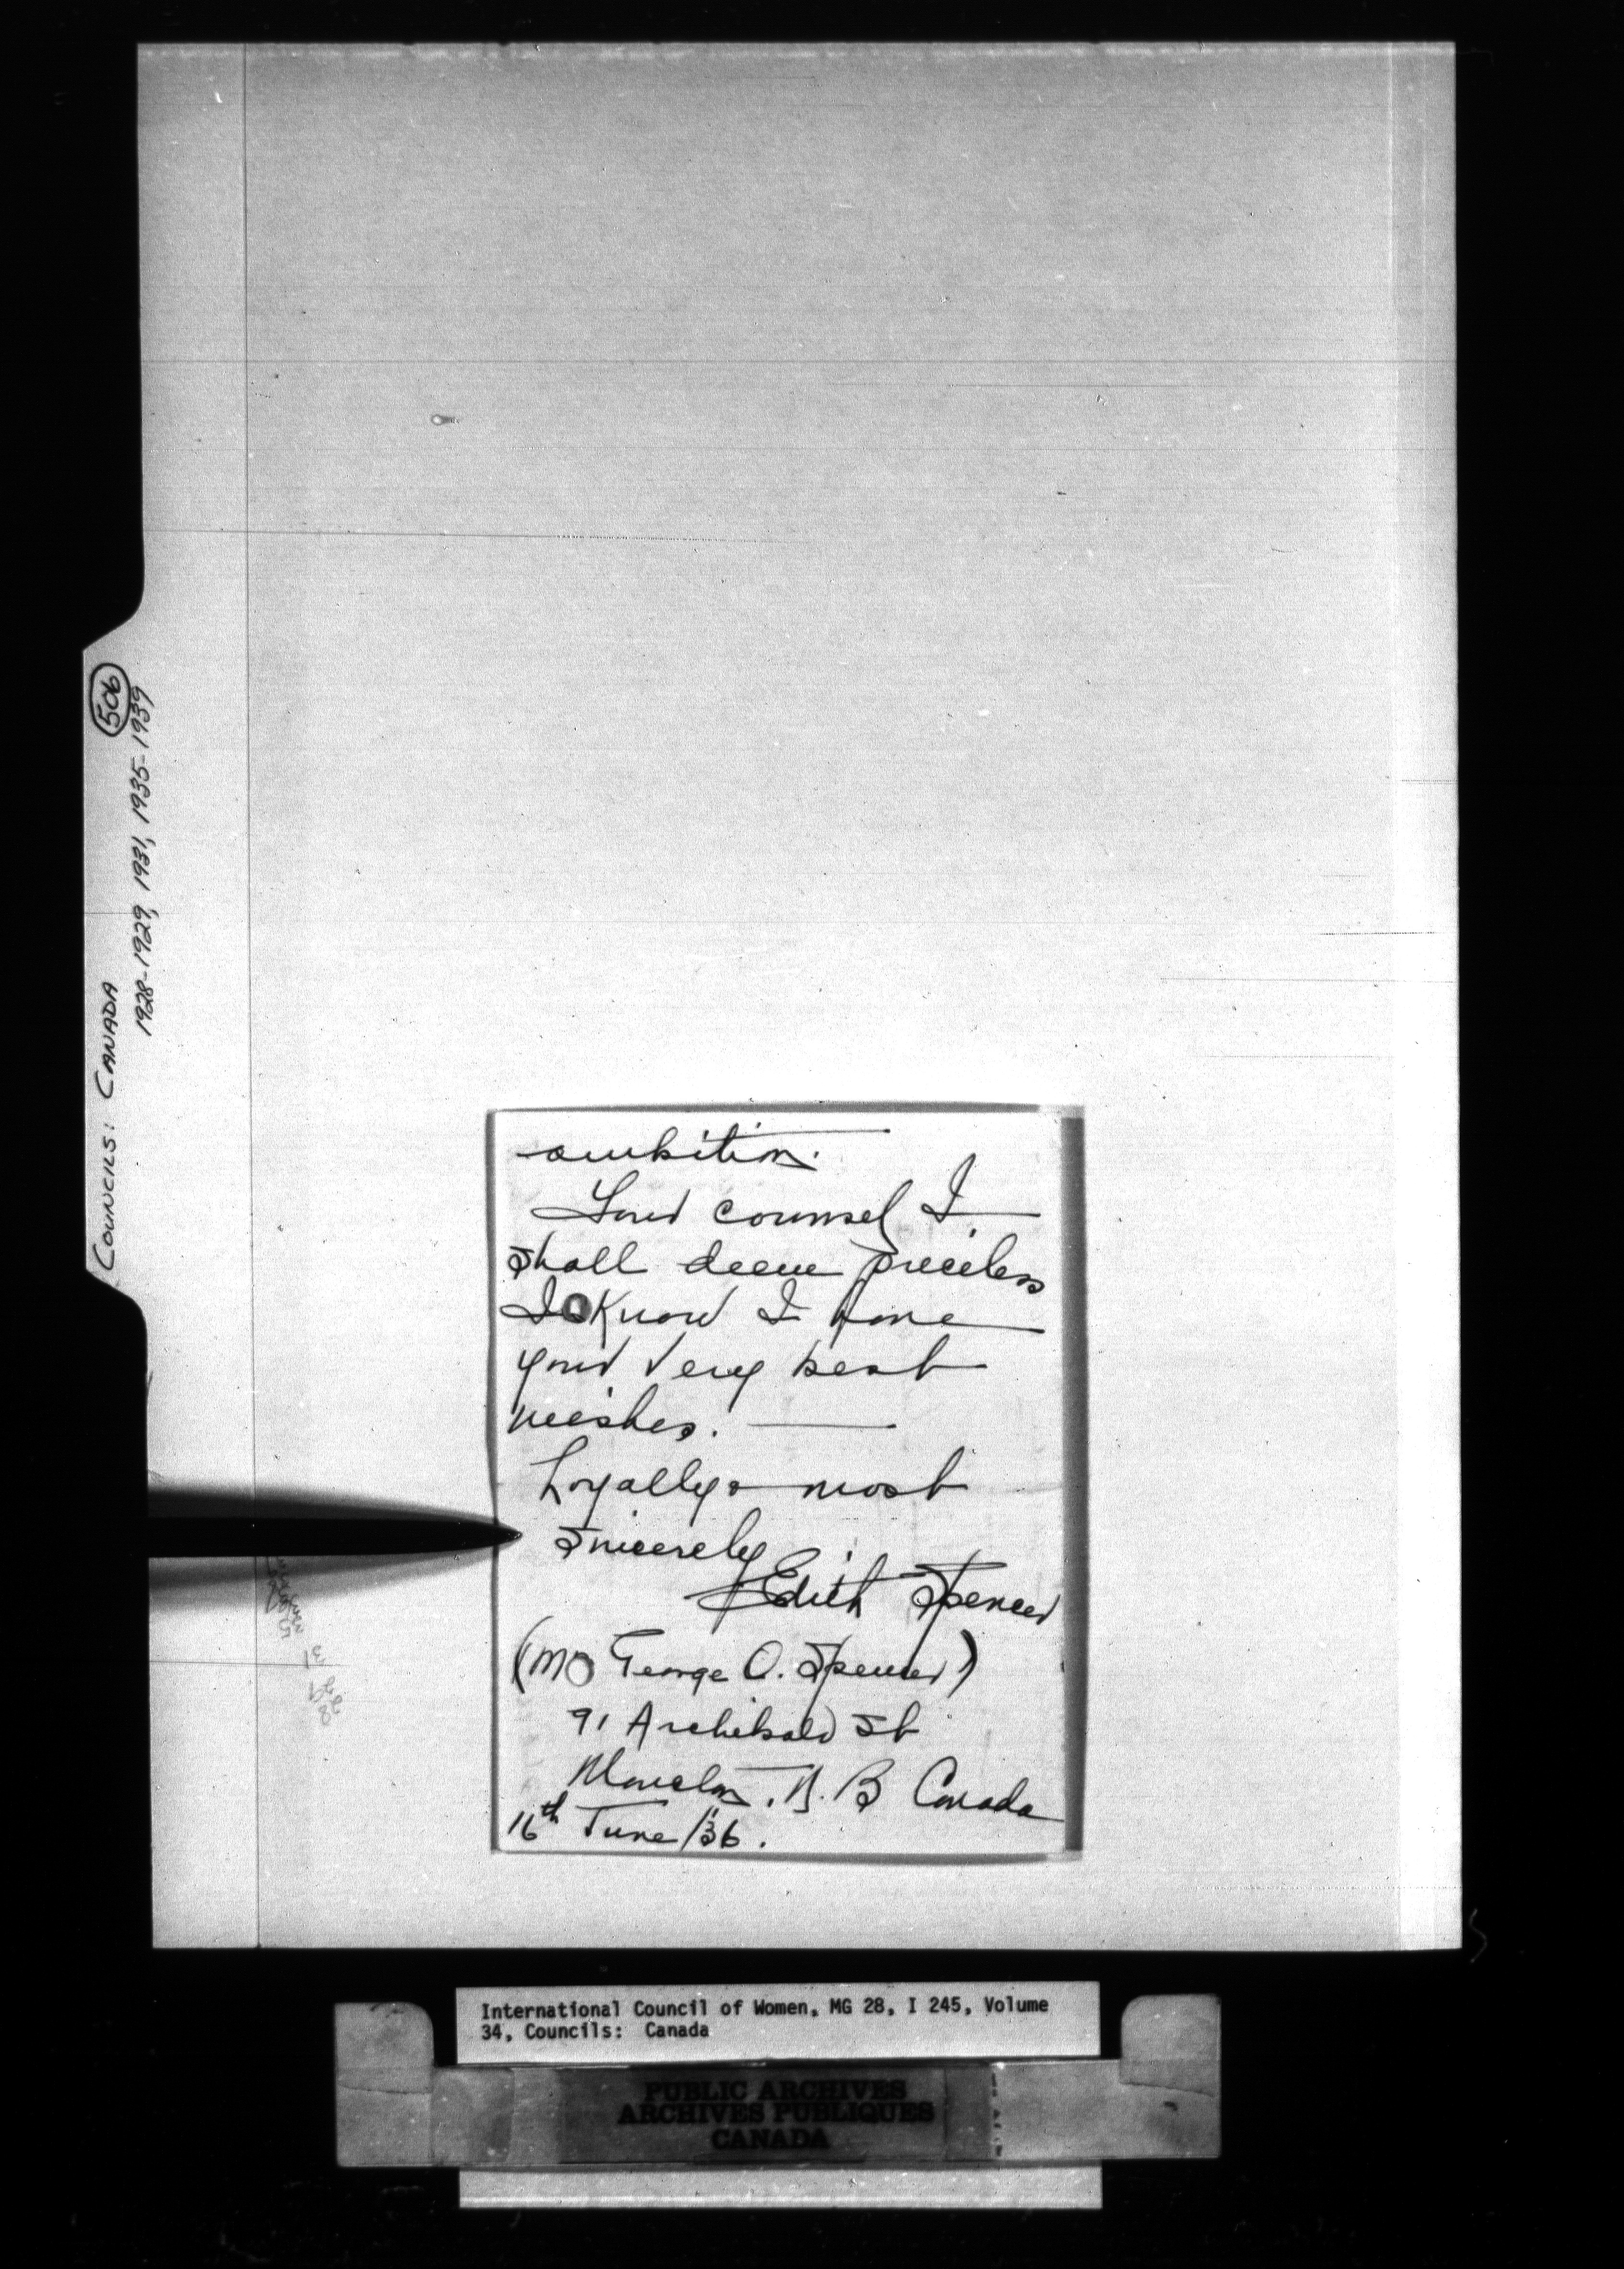 COUNCILS: CANADA 506
1928-1929, 1931, 1935-1939
ambition.
Your counsel I
shall deem priceless
I know I have
your very best
wishes. —
Loyally & most
sincerely
Edith Spencer
(Mrs George O. Spencer)
91 Archibald St
Moncton, N. B Canada
16th June /36.
International Council of Women, MG 28, I 245, Volume
34, Councils: Canada
PUBLIC ARCHIVES
ARCHIVES PUBLIQUES
CANADA